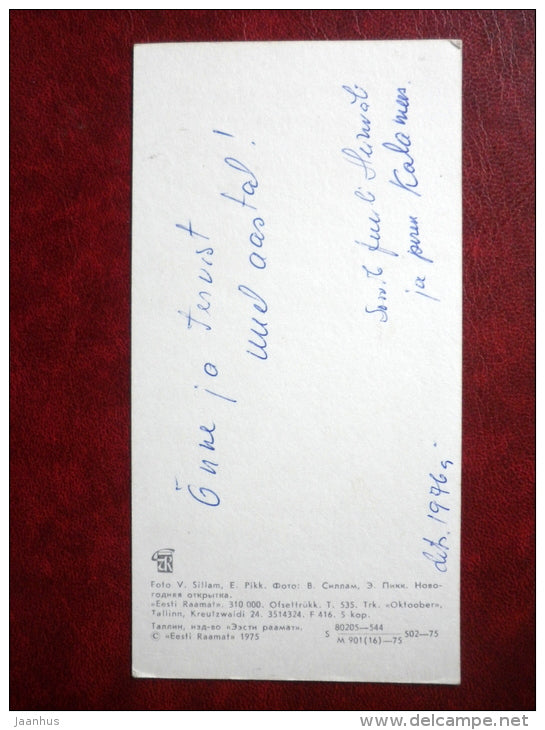 Õnne ja tervist
uuel aastal!
ja Kalamees.
dets. 1976a
Foto V. Sillam, E. Pikk. Фото: В. Силлам, Э. Пикк. Ново-
годняя открытка.
«Eesti Raamat». 310 000. Ofsettrükk. T. 535. Trk. «Oktoober»,
Tallinn, Kreutzwaldi 24. 3514324. F 416. 5 kop.
Таллин, изд-во «Ээсти раамат».
© «Eesti Raamat» 1975
S 80205—544 502—75
M 901(16)—75
jaanhunt
www.delcampe.net